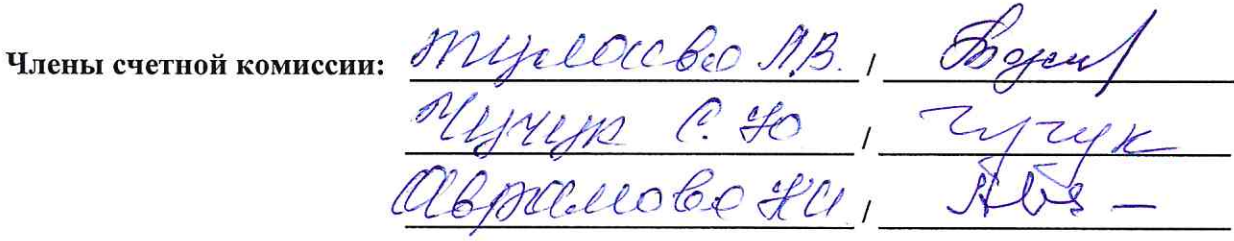 Члены счетной комиссии: Л.В. /
Чучук С. Ю / Чучук
Аврамова Н И /